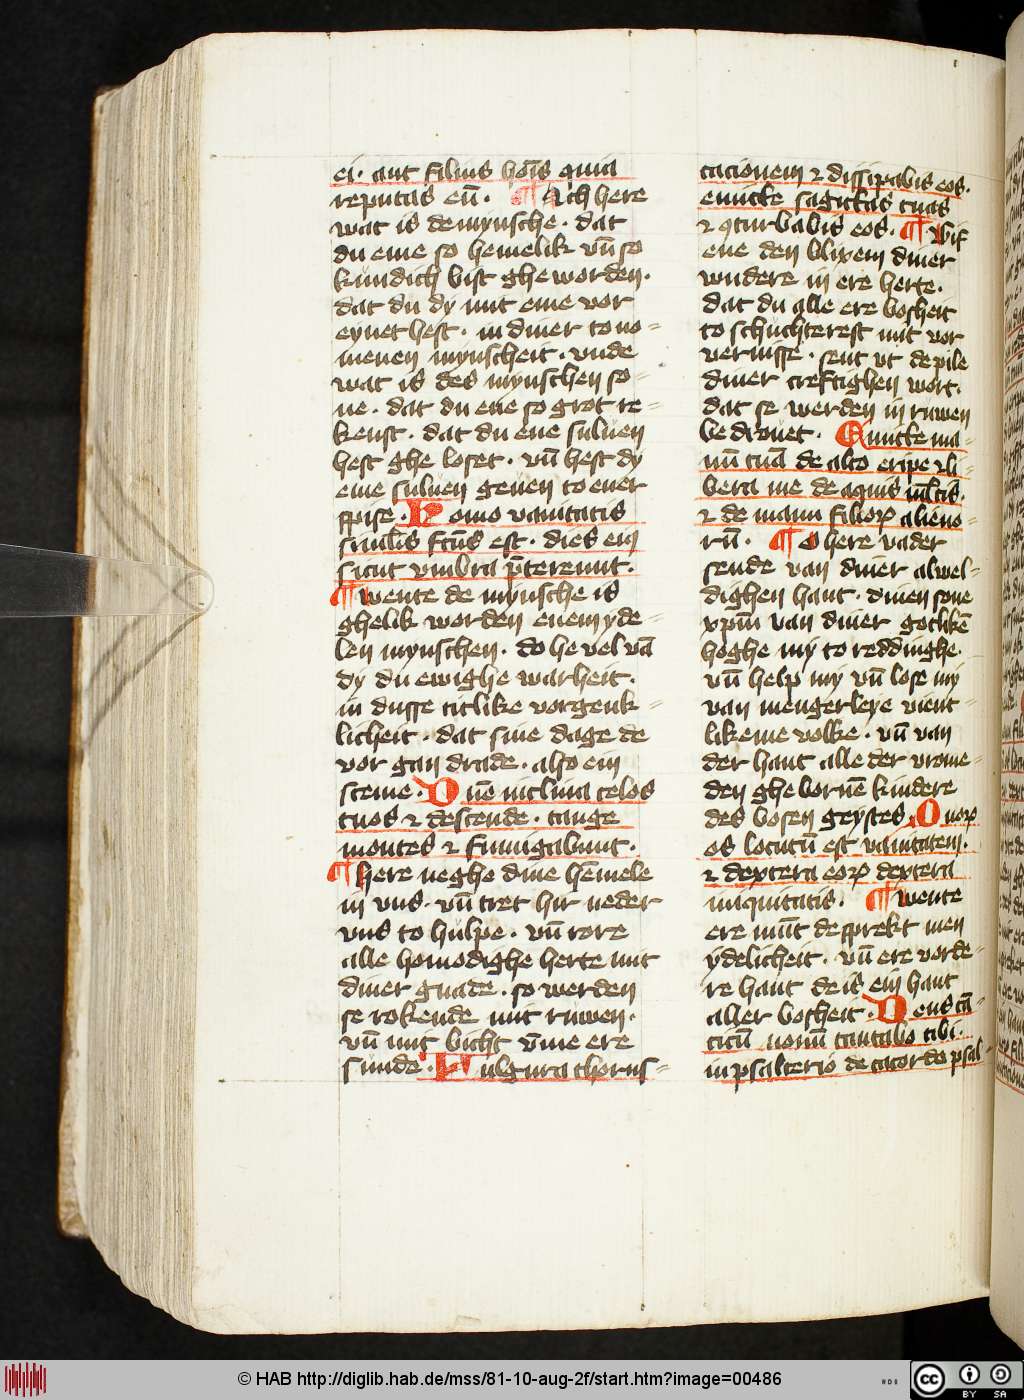 ei · aut filius ho͞is quia
reputas eu͞ · ¶ Ach here
wat is de mynsche · dat
du eme so hemelik vn͞ so
kundich bist ghe worden ·
dat du dy mit eme vor
eynet hest · in diner to no=
menen mynscheit · vnde
wat is des mynschen so=
ne · dat du ene so grot re=
kenst · dat du ene suluen
hest ghe loset · vn͞ hest dy
eme suluen geuen to ener
spise · Homo vanitatis
simil͞is fc͞us est · dies ei͛
sicut vmbra p͞tereunt ·
¶ wente de mynsche is
ghelik worden enem yde=
len mynschen · do he vel va͞
dy du ewighe warheit ·
in dusse titlike vorgenk=
licheit · dat sine dage de
vor gan drade · also ein
sceme · Dn͞e inclina celos
tuos ⁊ descende · tange
montes ⁊ fumigabunt ·
¶ here neghe dine he͞mele
in vns · vn͞ tret hir neder
vns to hulpe · vn͞ rore
alle homodighe herte mit
diner gnade · so werden
se rokende mit ruwen ·
vn͞ mit bicht v͞me ere
sunde · Fulgura chorus=
cacionem ⁊ dissipabis eos ·
emitte sagittas tuas
⁊ ꝯturbabis eos · ¶ Wif
ene den blixem diner
wndere in ere herte ·
dat du alle ere bosheit
to schuchterest mit vor
vernisse · sent vt de pile
diner creftighen wort ·
dat se werden in ruwen
be drouet · Emitte ma=
nu͞ tua͞ de alto eripe ⁊ li=
bera me de aquis m͞ltis ·
⁊ de manu filioꝝ alieno=
ru͞ · ¶ O here vader
sende van diner alwel=
dighen hant · dinen sone
xp͞m van diner gotlike͞
hoghe my to reddinghe ·
vn͞ help my vn͞ lose my
van mengerleye vient=
likeme volke · vn͞ van
der hant alle der vrome=
den ghe borne͞ kindere
des bosen geystes · Quoꝝ
os locutu͞ est vanitatem ·
⁊ dextera eoꝝ dextera
iniquitatis · ¶ wente
ere mu͞t de sprekt men
ydelicheit · vn͞ ere vorde=
re hant de is ein hant
aller bosheit · Deus ca͞=
ticu͞ nouu͞ cantabo tibi ·
in psalterio decacordo psal=
© HAB http://diglib.hab.de/mss/81-10-aug-2f/start.htm?image=00486
cc BY SA